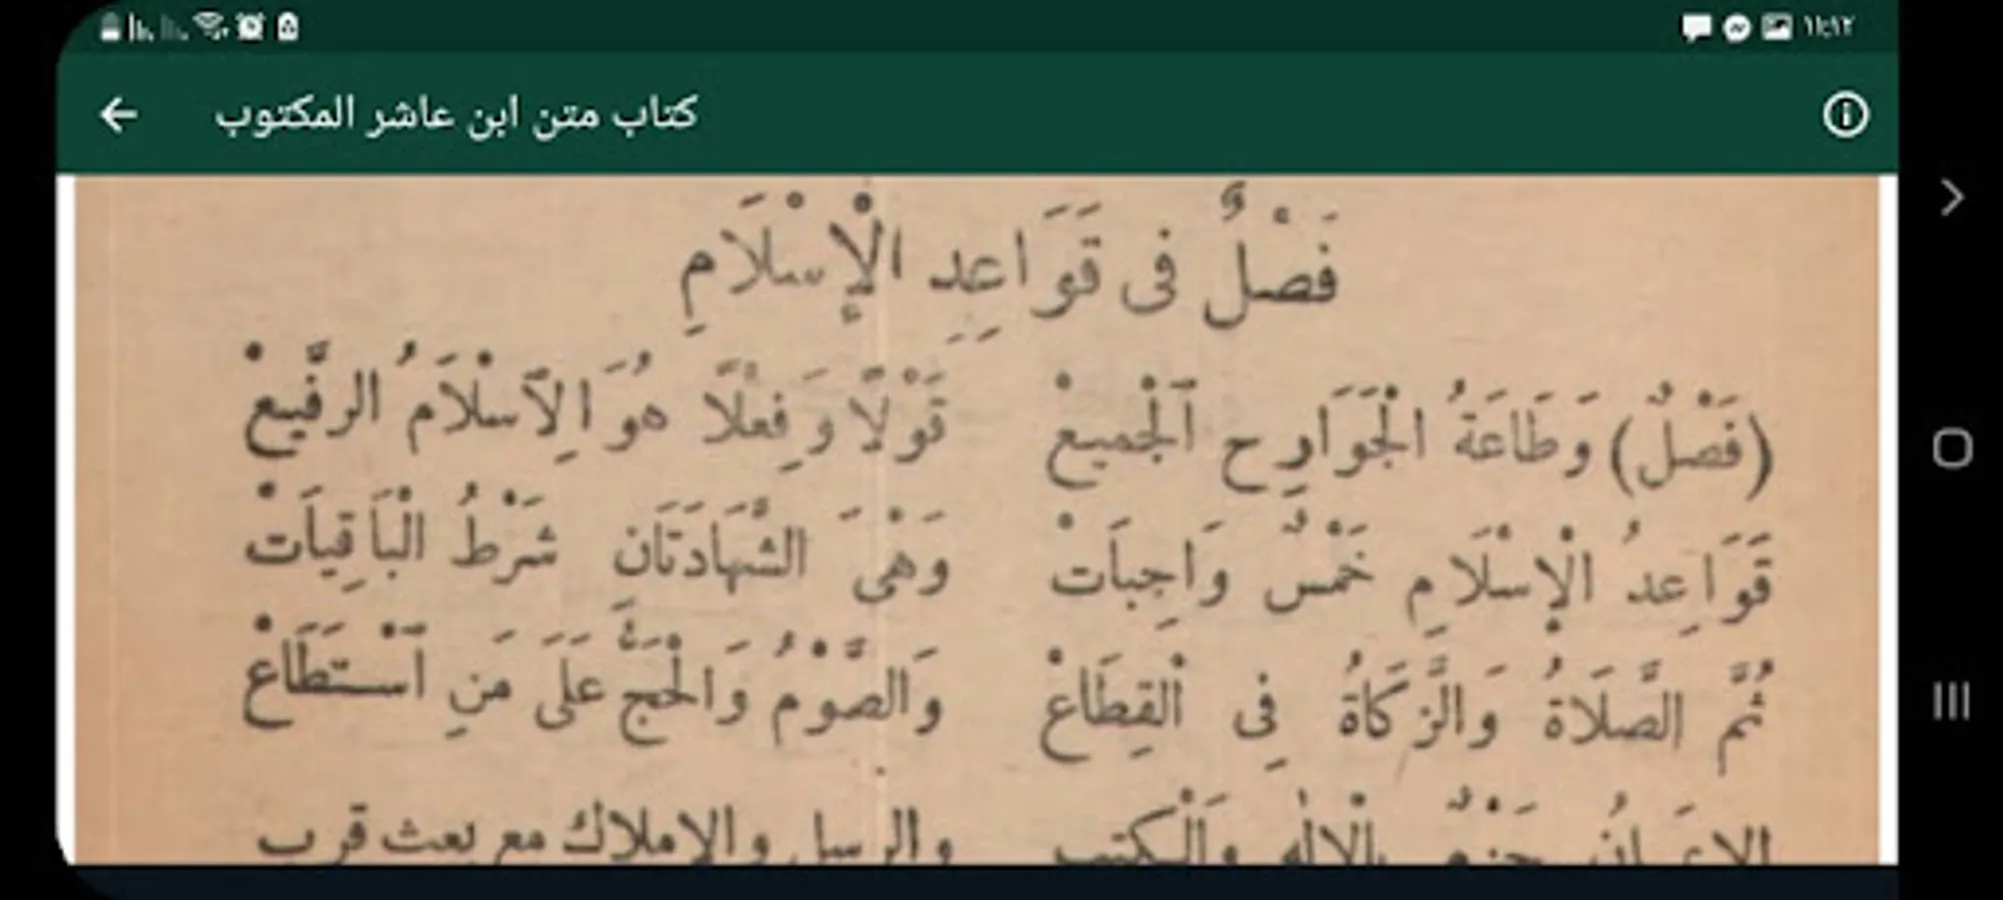 ١١:١٢
كتاب متن ابن عاشر المكتوب
فَصْلٌ فى قَوَاعِدِ الْإِسْلَامِ
(فَصْلٌ) وَطَاعَةُ الْجَوَارِح اَلْجميعْ قَوْلًا وَفِعْلًا هُوَ الِاَسْلَامُ الرفَّيعْ
قَوَاعِدُ الْإِسْلَامِ خَمْسٌ وَاجِبَاتْ وَهْىَ الشَّهَادَتَانِ شَرْطُ الْبَاقِيَاتْ
ثُمَّ الصَّلَاةُ وَالزَّكَاةُ فِى الْقِطَاعْ وَالصَّوْمُ وَالْحَجُّ عَلَى مَنِ اَسْتَطَاعْ
الإيمَانُ جَزْمٌ بِالْإلٰهِ وَالْكتب والرسل والاملاك مع بعث قرب